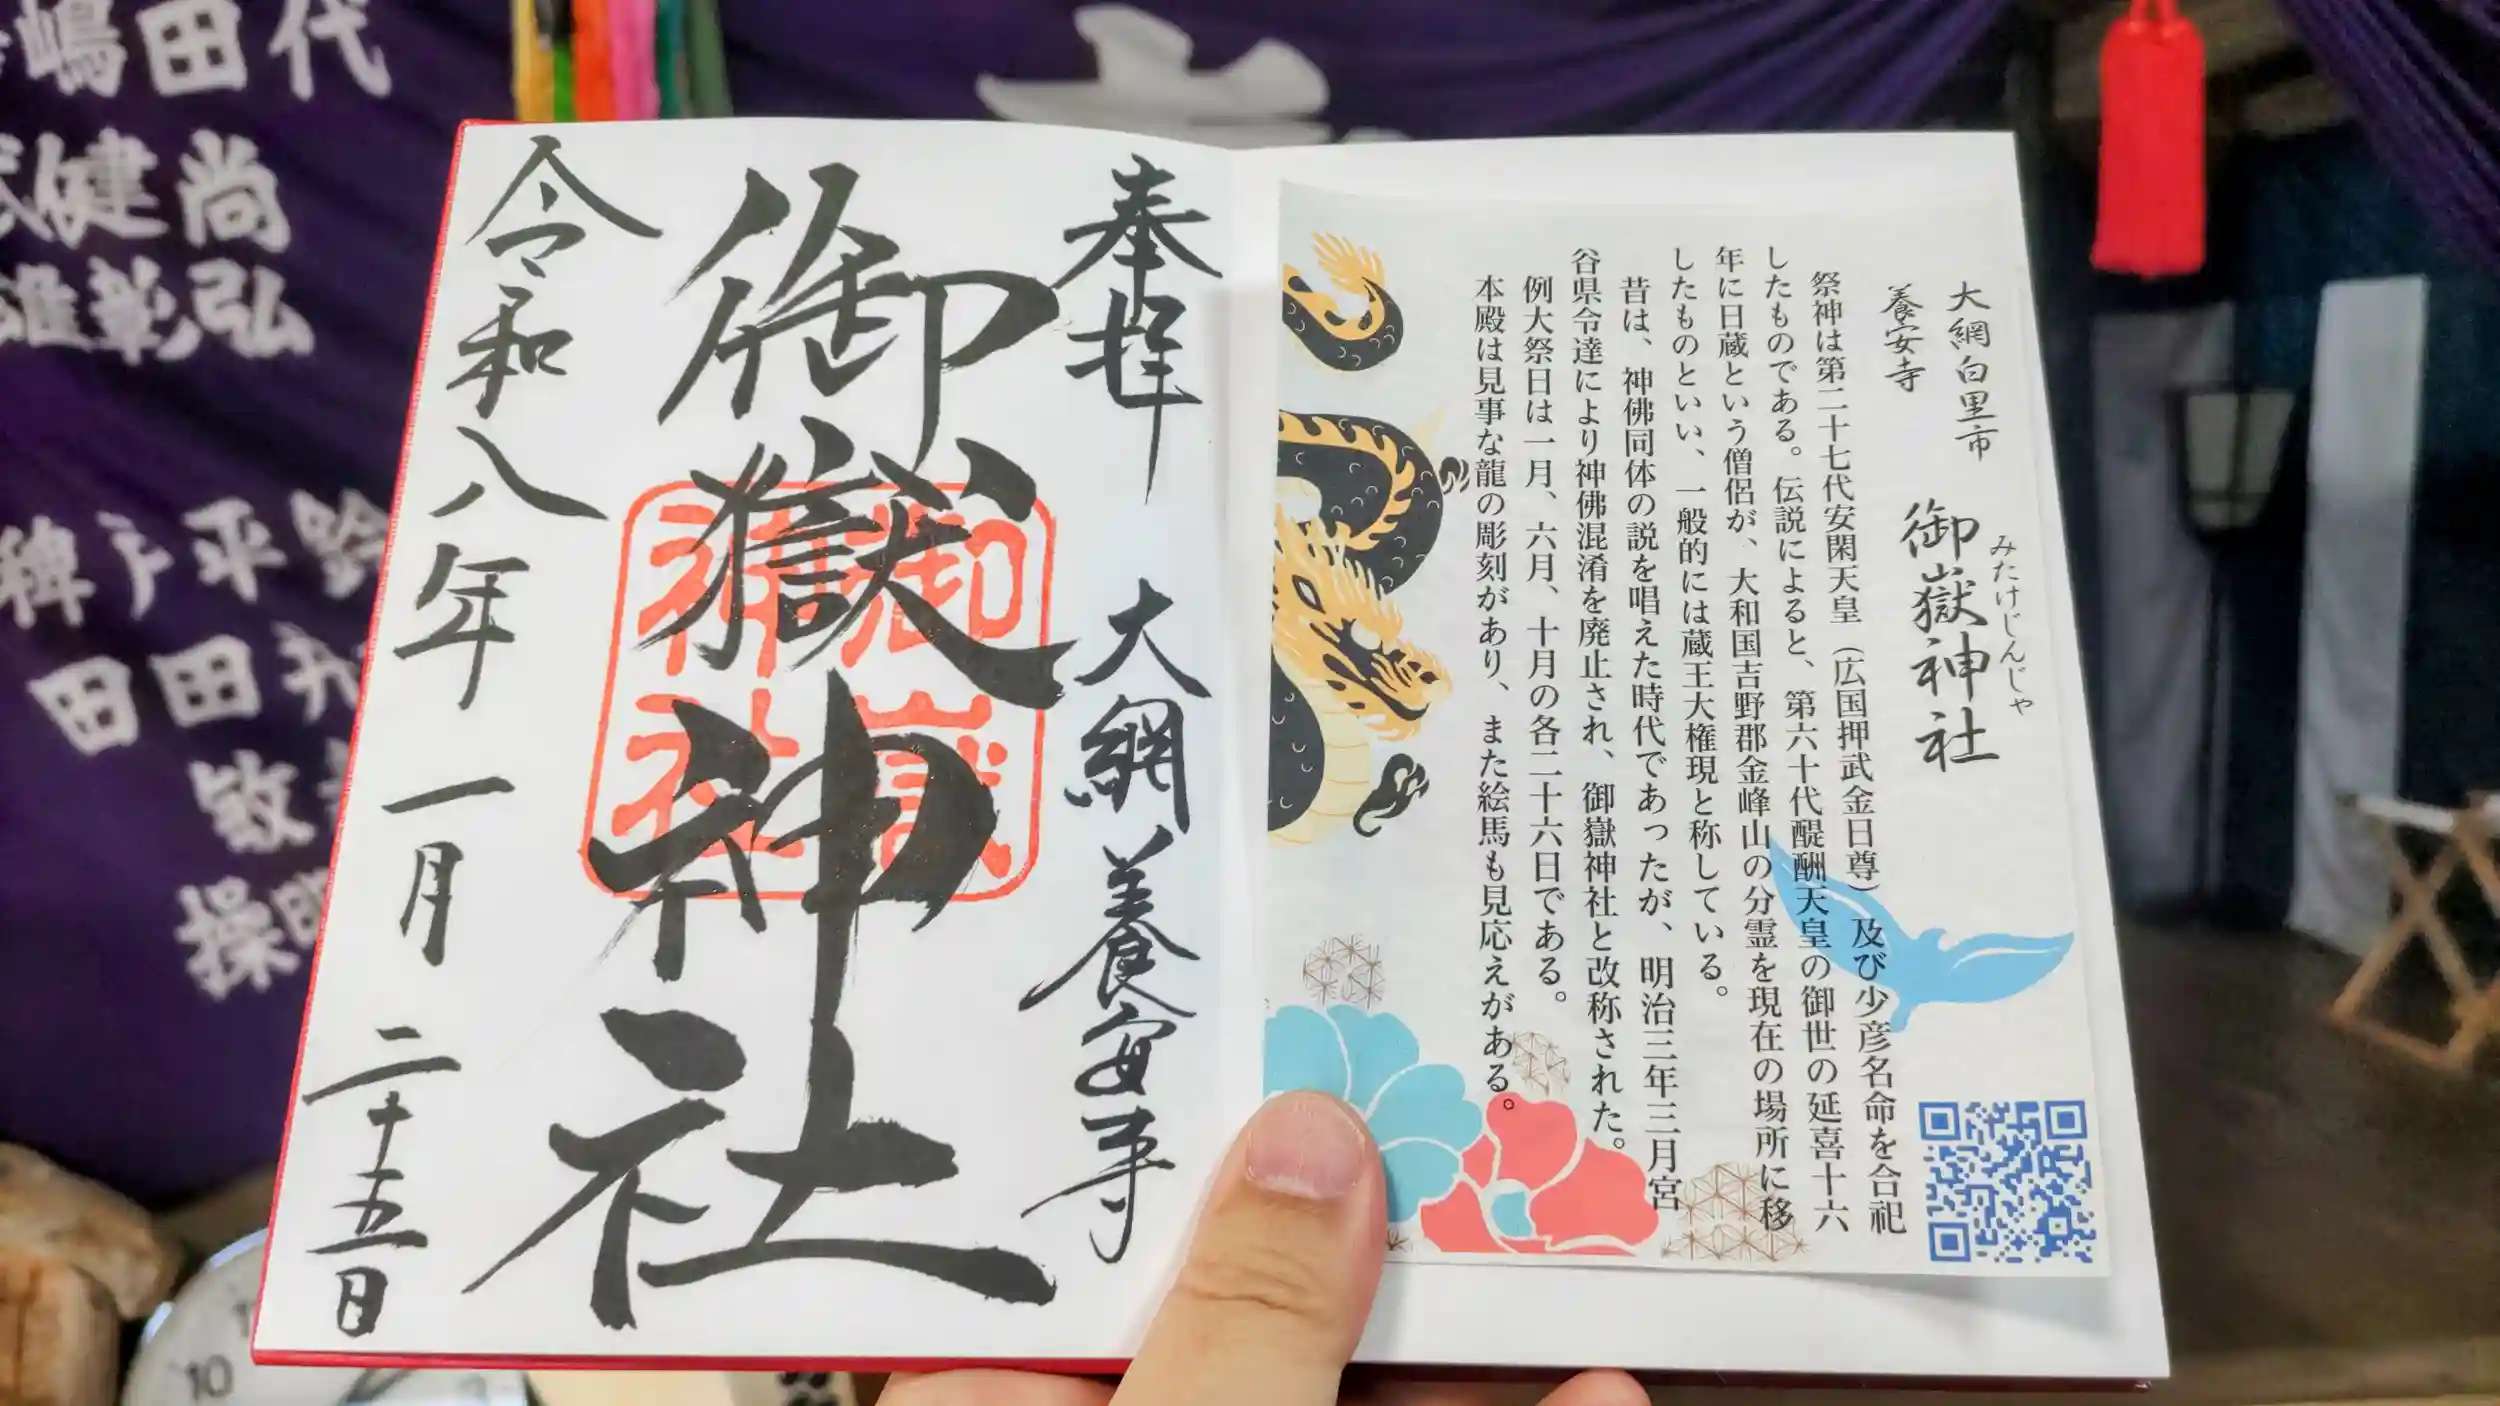 大網白里市
養安寺
御嶽神社
みたけじんじゃ
祭神は第二十七代安閑天皇（広国押武金日尊）及び少彦名命を合祀
したものである。伝説によると、第六十代醍醐天皇の御世の延喜十六
年に日蔵という僧侶が、大和国吉野郡金峰山の分霊を現在の場所に移
したものといい、一般的には蔵王大権現と称している。
昔は、神佛同体の説を唱えた時代であったが、明治三年三月宮
谷県令達により神佛混淆を廃止され、御嶽神社と改称された。
例大祭日は一月、六月、十月の各二十六日である。
本殿は見事な龍の彫刻があり、また絵馬も見応えがある。
奉拝
大網養安寺
御嶽神社
御嶽
神社
令和八年一月二十五日
嶋田代
健尚
雄彰弘
平鈴
田田
敏
操
10